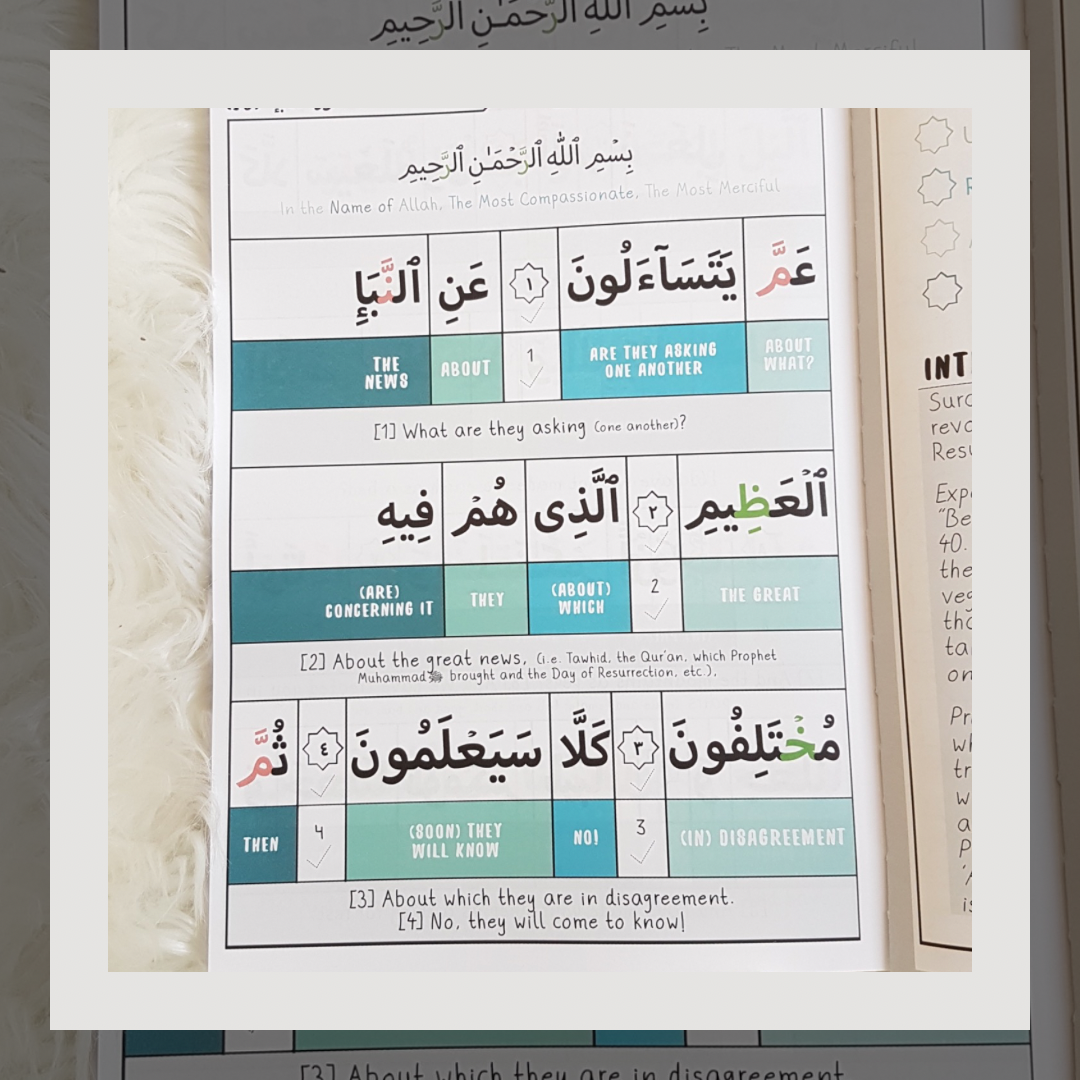 بِسْمِ ٱللَّهِ ٱلرَّحْمَـٰنِ ٱلرَّحِيمِ
بِسْمِ ٱللَّهِ ٱلرَّحْمَـٰنِ ٱلرَّحِيمِ
In the Name of Allah, The Most Compassionate, The Most Merciful
عَمَّ يَتَسَآءَلُونَ ١ عَنِ ٱلنَّبَإِ
THE NEWS ABOUT 1 ARE THEY ASKING ONE ANOTHER ABOUT WHAT?
[1] What are they asking (one another)?
ٱلْعَظِيمِ ٢ ٱلَّذِى هُمْ فِيهِ
(ARE) CONCERNING IT THEY (ABOUT) WHICH 2 THE GREAT
[2] About the great news, (i.e. Tawhid, the Qur'an, which Prophet
Muhammad ﷺ brought and the Day of Resurrection, etc.),
مُخْتَلِفُونَ ٣ كَلَّا سَيَعْلَمُونَ ٤ ثُمَّ
THEN 4 (SOON) THEY WILL KNOW NO! 3 (IN) DISAGREEMENT
[3] About which they are in disagreement.
[4] No, they will come to know!
INT
Sura
revo
Resu
Expe
"Be
40.
the
veg
tha
ta
on
Pr
wh
tr
w
a
P
is
[3] About which they are in disagreement